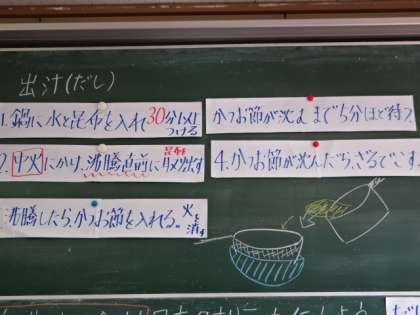 出汁(だし)
1.鍋に水と昆布を入れて30分以上つける
2.中火にかけ、沸騰直前に昆布取り出す
沸騰したら、かつお節を入れる。火を消す
かつお節が沈むまで5分ほど待つ。
4.かつお節が沈んだら、ざるでこす。